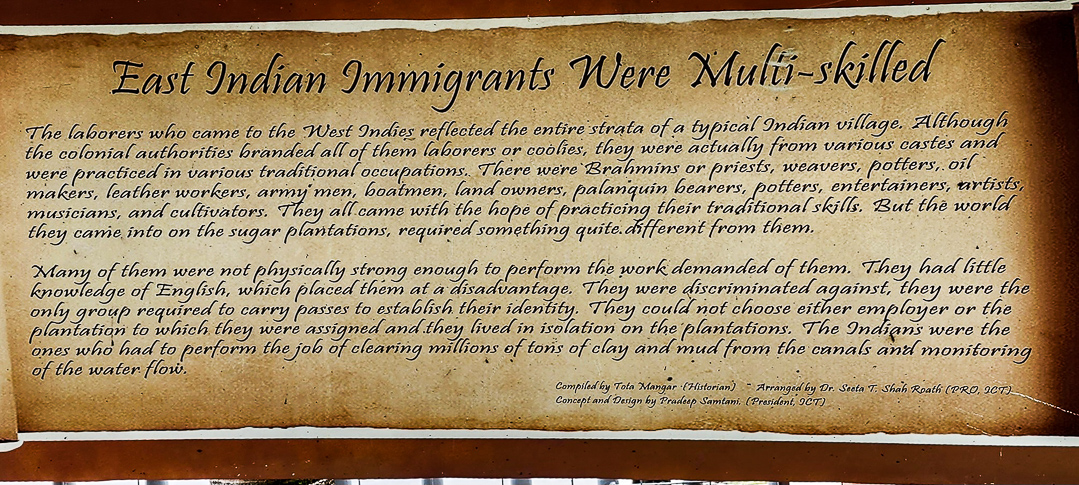 East Indian Immigrants Were Multi-skilled
The laborers who came to the West Indies reflected the entire strata of a typical Indian village. Although
the colonial authorities branded all of them laborers or coolies, they were actually from various castes and
were practiced in various traditional occupations. There were Brahmins or priests, weavers, potters, oil
makers, leather workers, army men, boatmen, land owners, palanquin bearers, potters, entertainers, artists,
musicians, and cultivators. They all came with the hope of practicing their traditional skills. But the world
they came into on the sugar plantations, required something quite different from them.
Many of them were not physically strong enough to perform the work demanded of them. They had little
knowledge of English, which placed them at a disadvantage. They were discriminated against, they were the
only group required to carry passes to establish their identity. They could not choose either employer or the
plantation to which they were assigned and they lived in isolation on the plantations. The Indians were the
ones who had to perform the job of clearing millions of tons of clay and mud from the canals and monitoring
of the water flow.
Compiled by Tota Mangar (Historian) - Arranged by Dr. Seeta T. Shah Roath (PRO, ICT)
Concept and Design by Pradeep Samtani. (President, ICT)